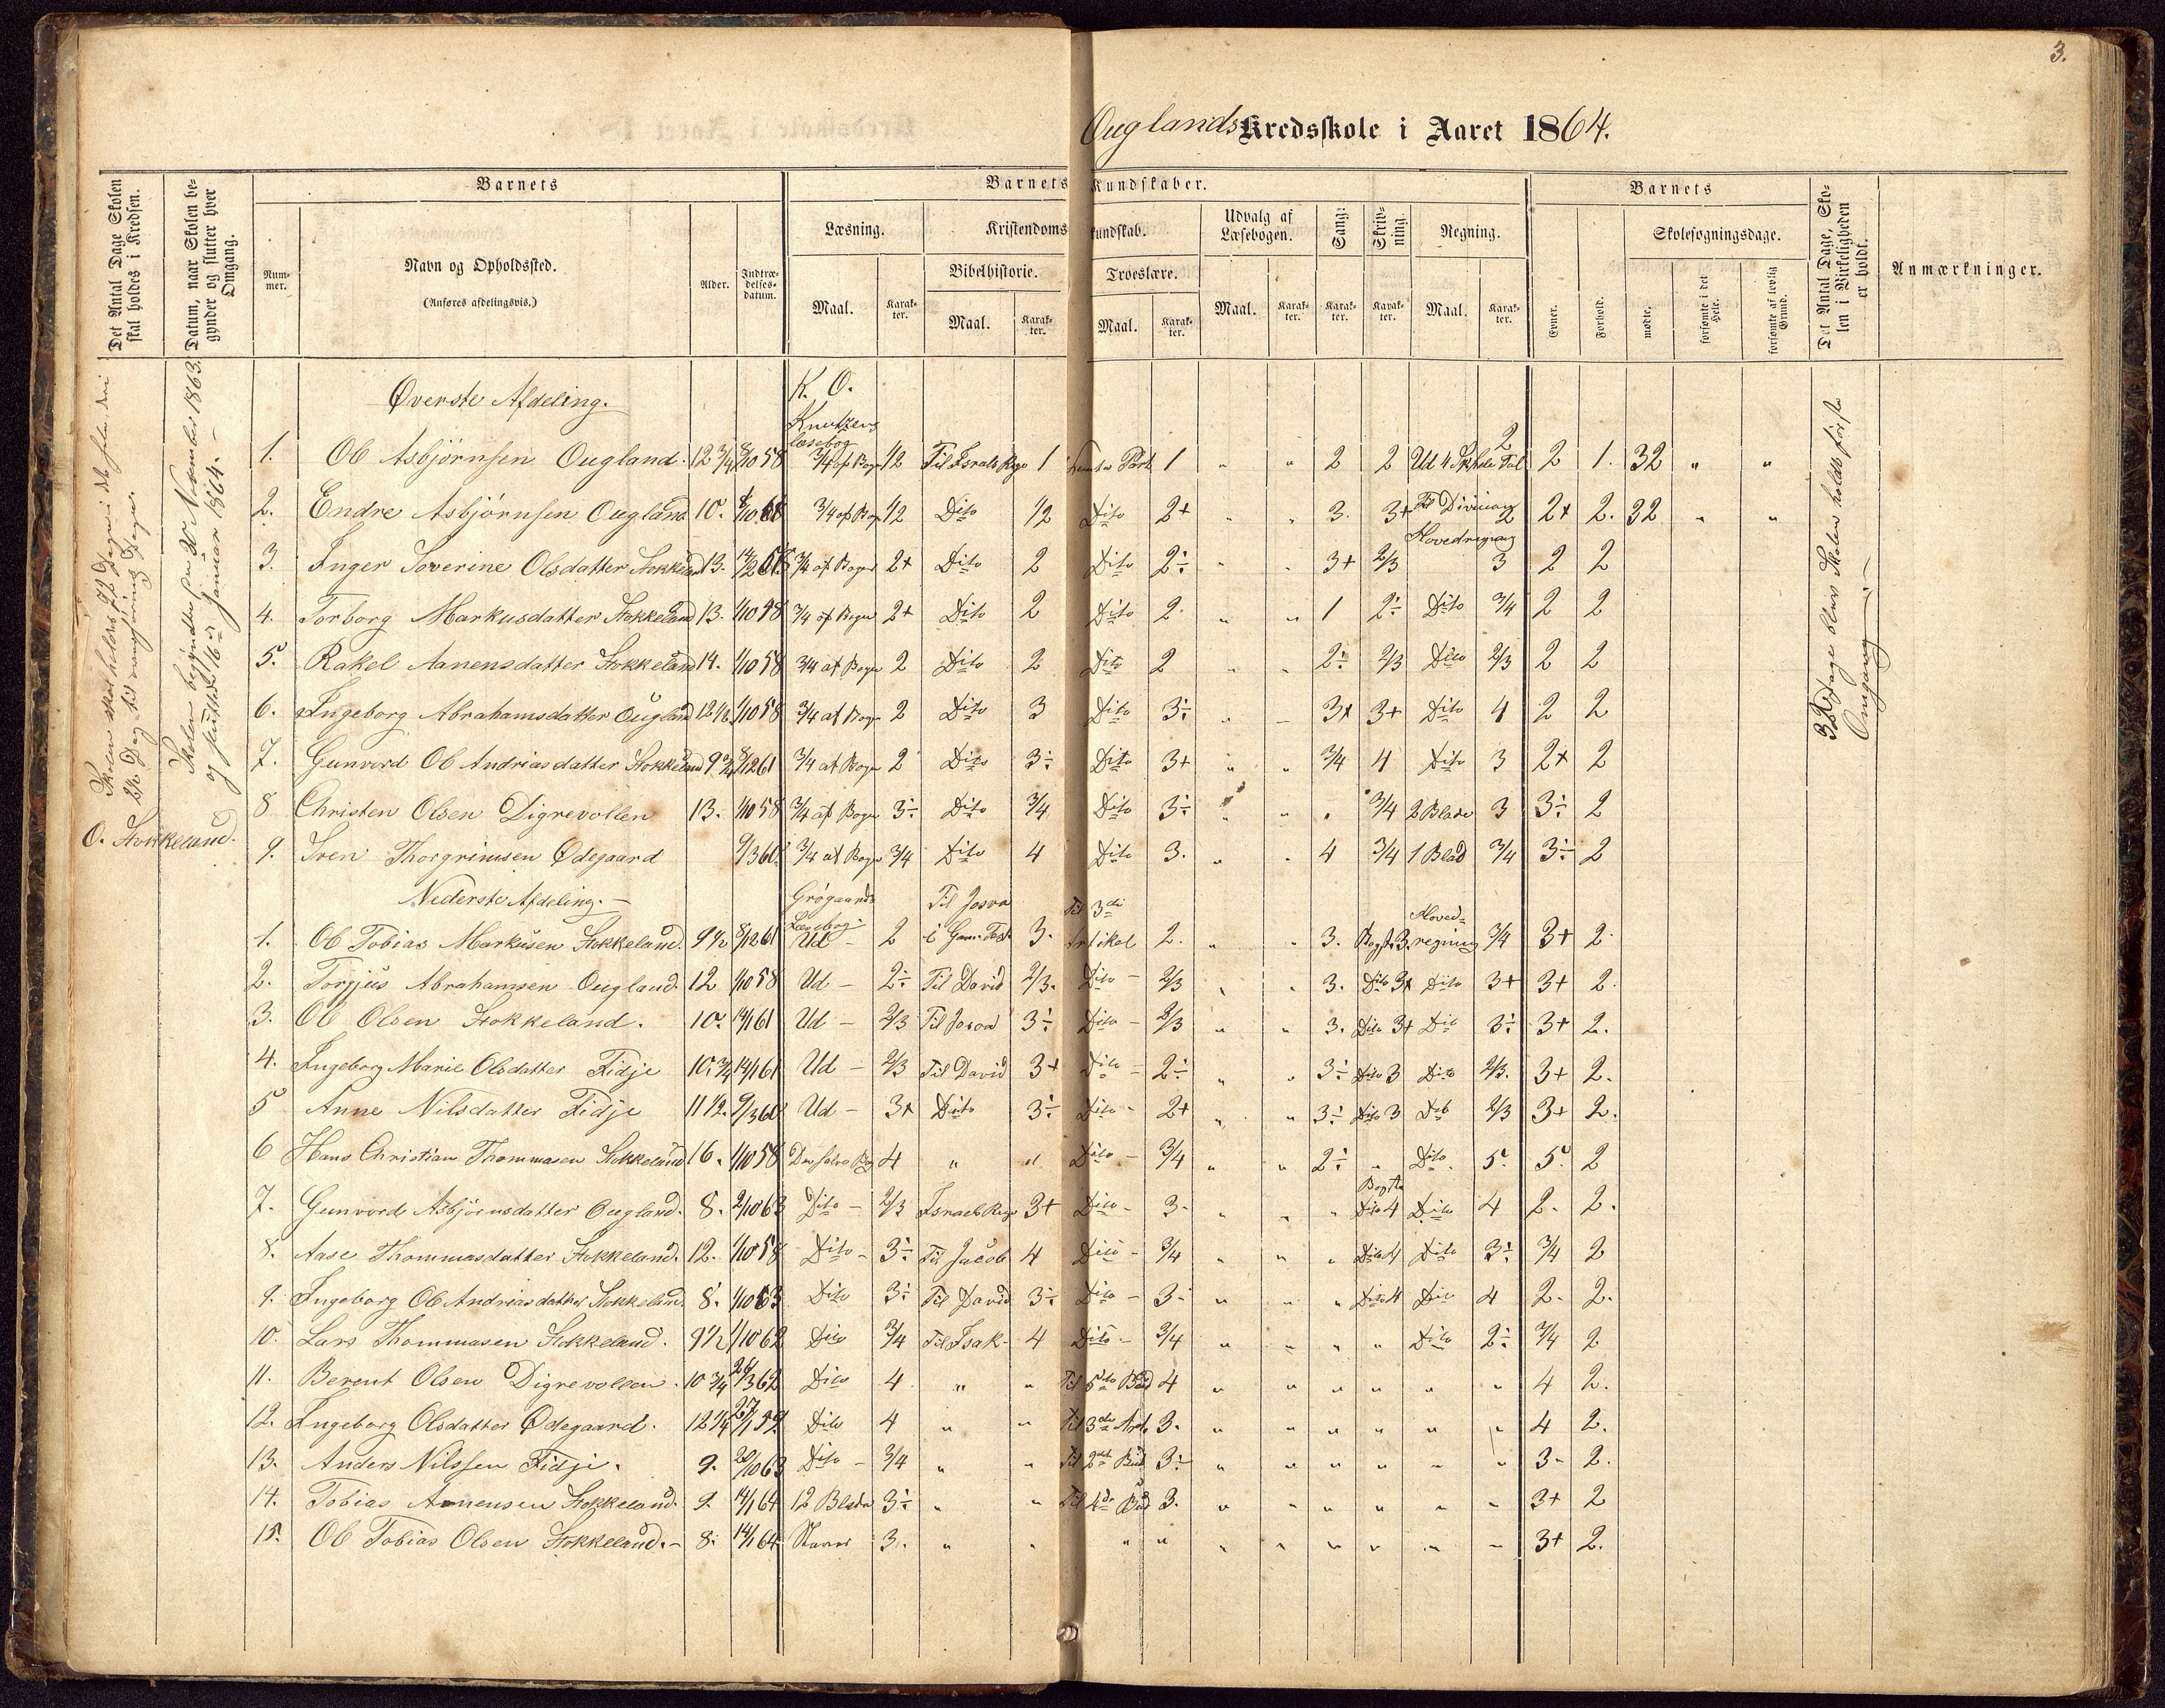 3.
Ouglands Kredsskole i Aaret 1864.
Det Antal Dage Skolen skal holdes i Kredsen.
Datum, naar Skolen begynder og slutter hver Omgang.
Barnets
Nummer.
Navn og Opholdssted.
(Anføres afdelingsvis.)
Alder.
Indtrædelsesdatum.
Barnets Kundskaber.
Læsning.
Maal.
Karakter.
Kristendomskundskab.
Bibelhistorie.
Maal.
Karakter.
Troeslære.
Maal.
Karakter.
Udvalg af Læsebogen.
Maal.
Karakter.
Sang.
Karakter.
Skrivning.
Karakter.
Regning.
Maal.
Karakter.
Barnets
Evner.
Forhold.
Skolesøgningsdage.
mødte.
forsømte i det Hele.
forsømte af lovlig Grund.
Det Antal Dage, Skolen i Virkeligheden er holdt.
Anmærkninger.
Skolen begyndte den 20 November 1863.
og sluttede 16de Januar 1864.
O. Stokkeland.
Øverste Afdeling.
K. O.
Knutzens
læsebog
1. Ole Asbjørnsen Ougland. 12 3/4 8/10 58 3/4 af Bogen 1/2 Til Israels Rige 1 Part 1 " " 2 2 Ud 4 Tal 2 2 1. 32 " "
2. Endre Asbjørnsen Ougland 10. 3/4 af Bogen 1/2 Dito 1/2 Dito 2+ " " 3. 3+ Til Division 2 2+ 2. 32 " "
Hovedregning
3. Inger Severine Olsdatter Stokkeland 13. 3/4 af Bogen 2+ Dito 2 Dito 2÷ " " 3+ 2/3 3 2 2
4. Torborg Markusdatter Stokkeland 13. 1/10 58 3/4 af Bogen 2+ Dito 2 Dito 2. " " 1 2÷ Dito 3/4 2 2
5. Rakel Aanensdatter Stokkeland 14. 1/10 58 3/4 af Bogen 2 Dito 2 Dito 2 " " 2÷ 2/3 Dito 2/3 2 2
6. Ingeborg Abrahamsdatter Ougland 12 1/2 1/10 58 3/4 af Bogen 2 Dito 3 Dito 3÷ " " 3+ 3+ Dito 4 2 2
7. Gunvord Ole Andriasdatter Stokkeland 8/12 61 3/4 af Bogen 2 Dito 3÷ Dito 3+ " " 3/4 4 Dito 3 2+ 2
8 Christen Olsen Digrevollen 13. 1/10 58 3/4 af Bogen 3÷ Dito 3/4 Dito 3÷ " " " 3/4 2 Blade 3 3÷ 2
9. Sven Thorgrimsen Ødegaard 9/3 60 3/4 af Bogen 3/4 Dito 4 Dito 3. " " 4 3/4 1 Blad 3/4 3÷ 2
Nederste Afdeling.
Grøgaards Til Josva Til 3die
Læsebog Hoved-
1. Ole Tobias Markusen Stokkeland. 9 1/2 8/12 61 Ud - 2 3. Artikel 2. " " 3. Bogst. 3. regning 3/4 3+ 2.
2. Torjus Abrahamsen Ougland. 12 1/10 58 Ud - 2÷ Til David 2/3. Dito - 2/3 " " 3. Dito 3+ Dito 3+ 3+ 2.
3. Ole Olsen Stokkeland. 10. 14/1 61 Ud - 2/3 Til Josva 3÷ Dito - 2/3 " " 3. Dito 3+ Dito 3÷ 3+ 2.
4. Ingeborg Marie Olsdatter Fidje 10 3/4 14/1 61 Ud - 2/3 Til David 3+ Dito - 2÷ " " 3÷ Dito 3 Dito 2/3. 3+ 2.
5 Anne Nilsdatter Fidje 11 1/2. 9/3 60 Ud - 3+ Dito 3÷ Dito - 2+ " " 3÷ Dito 3 Dito 2/3 3+ 2.
6 Hans Christian Thommasen Stokkeland 16. 1/10 58 Den halve Bog 4 " " Dito - 3/4 " " 2÷ " Dito 5. 5. 2
Bogst.
7. Gunvord Asbjørnsdatter Ougland. 8. 2/10 63 Dito - 2/3 Israels Rige 3+ Dito - 3- " " " Dito 4 Dito 4 2- 2.
8. Aase Thommasdatter Stokkeland. 12. 1/10 58 Dito - 3÷ Til Jacob 4 Dito - 3/4 " " " Dito 4 Dito 3÷ 3/4 2
9. Ingeborg Ole Andriasdatter Stokkeland. 8. 1/10 63 Dito 3÷ Til David 3÷ Dito - 3- " " " Dito 4 Dito 4 2- 2.
10. Lars Thommasen Stokkeland. 9 1/2 1/10 62 Dito 3/4 Til Isak 4 Dito - 3/4 " " " " Dito 2÷ 3/4 2
11. Berent Olsen Digrevollen. 10 3/4 26/3 62 Dito 4 " " Til 5te Bud 4 " " " " " " 4 2.
12. Ingeborg Olsdatter Ødegaard. 12 1/4 27/1 59 Dito 4 " " Til 3die Art. 3. " " " " " " 4 2.
13. Anders Nilssen Fidje. 9. 20/10 63 Dito - 3/4 " " Til 2det Bud 3÷ " " " " " " 3- 2.
14. Tobias Aanensen Stokkeland. 9. 14/1 64 12 Blade 3÷ " " Til 4de Bud 3. " " " " " " 3+ 2
15. Ole Tobias Olsen Stokkeland. - 8. 14/1 64 Staver 3. " " " " " " " " " " 3+ 2.